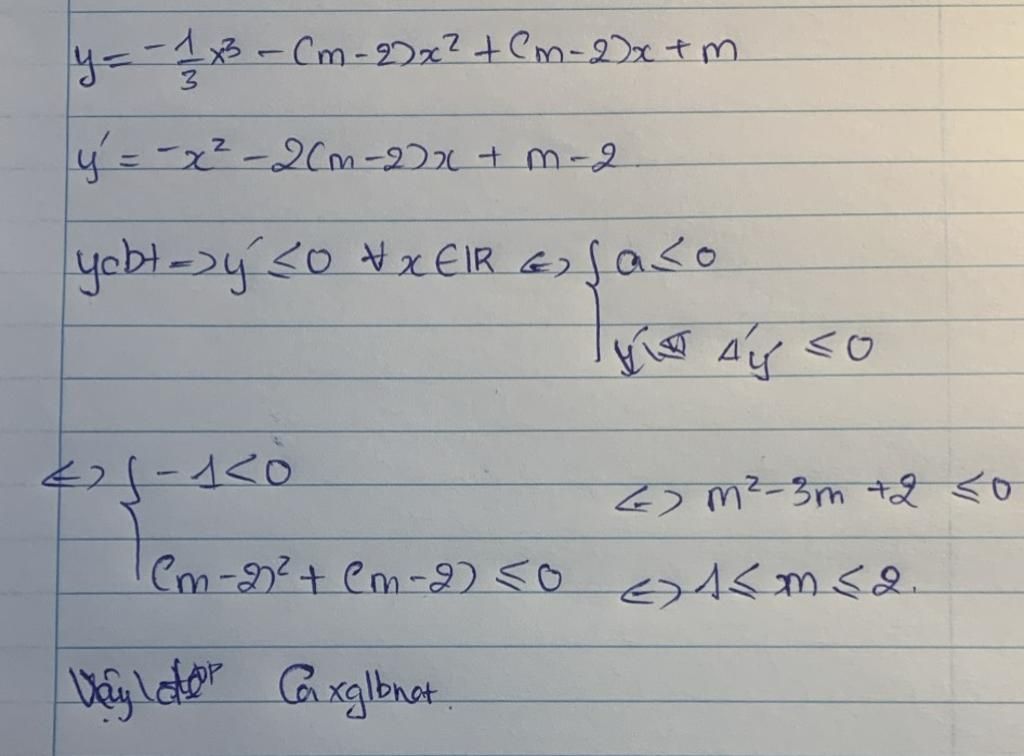 y = -1/3 x³ - (m-2)x² + (m-2)x + m
y' = -x² - 2(m-2)x + m-2
ycbt → y' ≤ 0 ∀ x ∈ IR ⇔ { a ≤ 0
Δ'y' ≤ 0
⇔ { -1 < 0
⇔ m² - 3m + 2 ≤ 0
(m-2)² + (m-2) ≤ 0
⇔ 1 ≤ m ≤ 2.
Vậy